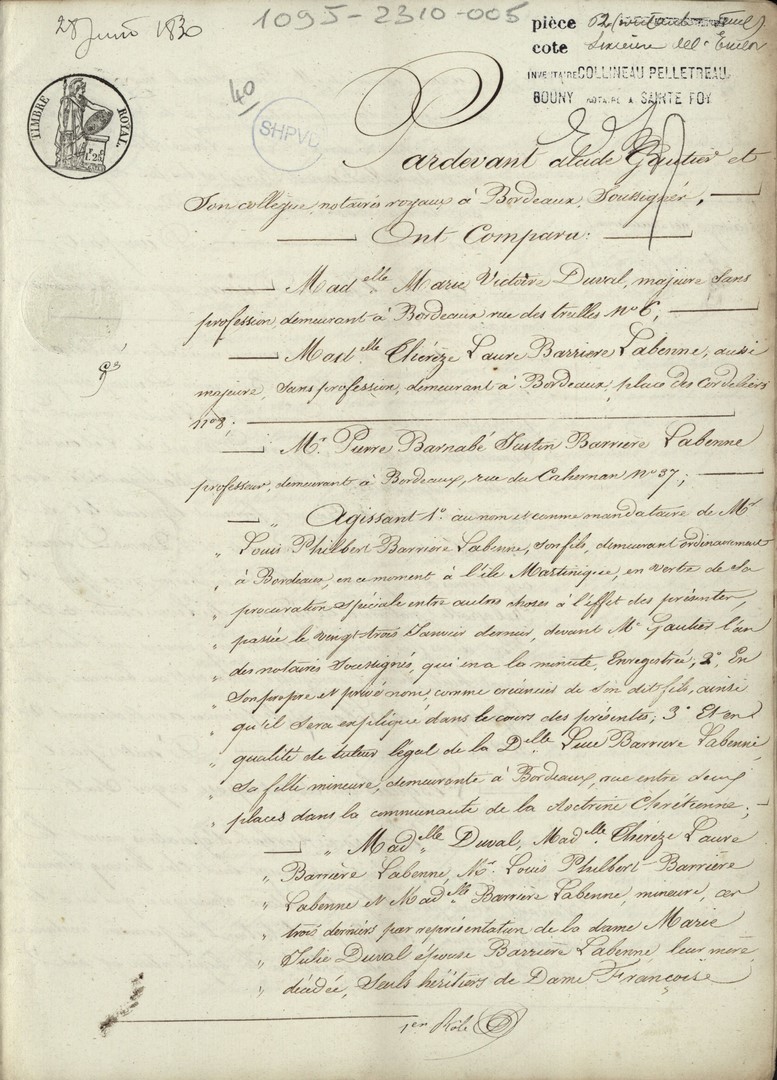 28 Juin 1830
1095-2310-005
pièce 02
cote
INVENTAIRE COLLINEAU PELLETREAU
BOUNY NOTAIRE A SAINTE FOY
TIMBRE ROYAL.
1F. 25c
40
SHPVD
Pardevant alcide Gautier et
Son collègue, notaires royaux à Bordeaux, Soussignés,
Ont Comparu:
Mad.elle Marie Victoire Duval, majeure sans
profession, demeurant à Bordeaux rue des treilles N° 6;
Mad.elle Thérèze Laure Barriere Labenne, aussi
majeure, sans profession, demeurant à Bordeaux, place des Cordeliers
n° 8;
Mr. Pierre Barnabé Justin Barriere Labenne
professeur, demeurant à Bordeaux, rue du Cahernan N° 37;
„ Agissant 1° au nom et comme mandataire de Mr.
„ Louis Philbert Barriere Labenne, son fils, demeurant ordinairement
„ à Bordeaux, en ce moment à l'île Martinique, en vertu de sa
„ procuration spéciale entre autres choses à l'effet des présentes,
„ passée le vingt-trois Janvier dernier, devant Me Gautier l'un
„ des notaires soussignés, qui en a la minute, Enregistrée; 2° En
„ son propre et privé nom, comme créancier de son dit fils, ainsi
„ qu'il sera expliqué dans le cours des présentes; 3° Et en
„ qualité de tuteur légal de la Delle Barriere Labenne,
„ sa fille mineure, demeurante à Bordeaux, rue entre deux
„ places dans la communauté de la doctrine Chrétienne;
„ Madelle Duval, Madelle Thérèze Laure
„ Barrière Labenne, Mr. Louis Philbert Barrière
„ Labenne et Madelle Barrière Labenne, mineure, ces
„ trois derniers par représentation de la dame Marie
„ Julie Duval épouse Barrière Labenne, leur mère
„ décédée, seuls héritiers de Dame Françoise
1er Rôle